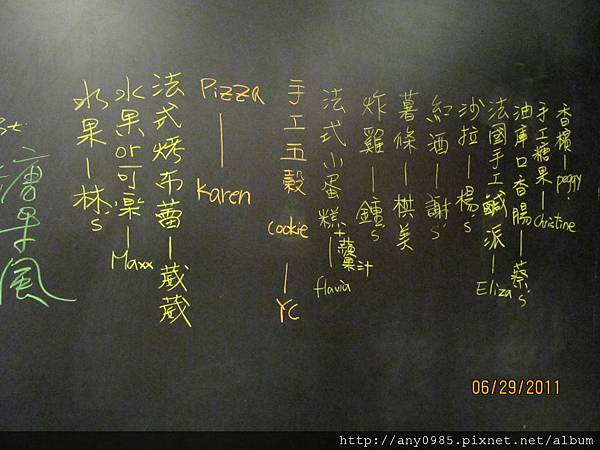 香檳—peggy.
手工糖果—Christine
油庫口香腸—蔡's
法國手工鹹派—Eliza
沙拉—楊's
紅酒—謝's
薯條—棋美
炸雞—鍾's
法式小蛋糕+蘋果汁 flavia
手工五穀 cookie — YC
PIZZA — Karen
法式烤布蕾—葳葳
水果or可樂—Maxx
水果—林's
st
糖果風
06/29/2011
http://any0985.pixnet.net/album